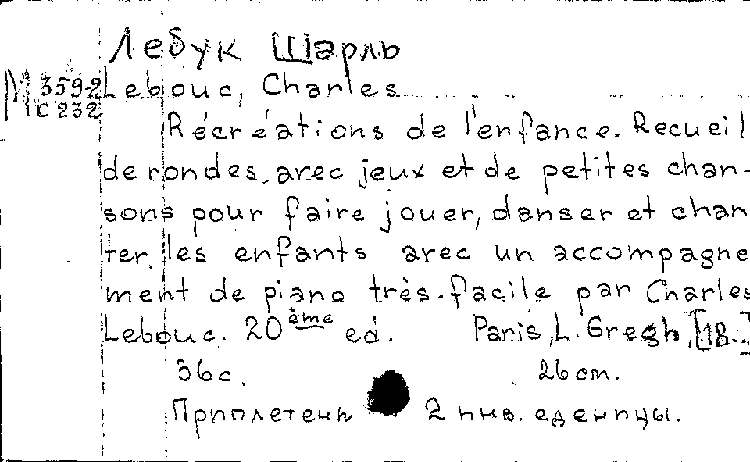 Лебук Шарль
М 359-2 Lebouc, Charles
С 232
Récréations de l'enfance. Recueil
de rondes avec jeux et de petites chan-
sons pour faire jouer, danser et chan
ter les enfants avec un accompagne
ment de piano très-facile par Charles
Lebouc. 20ème ed. Paris, L. Gregh, [18..]
36 с. 26 cm.
Приплетены 2 инв. еденицы.